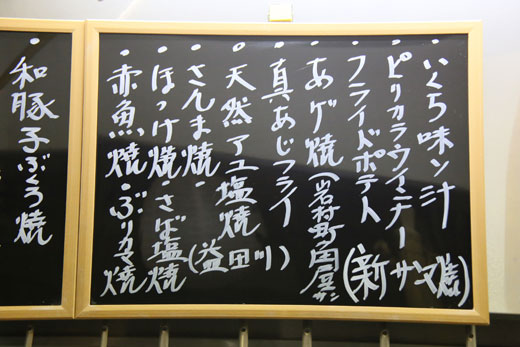 ・いくら味ン汁
・ピリカラウインナー(新サンマ焼)
・フライドポテト
・あゲ焼(岩村町田屋サン)
・真あじフライ
・天然アユ塩焼(益田川)
・さんま焼・
・ほっけ焼・さば塩焼
・赤魚焼・ぶりカマ焼
・和豚子ぶくろ焼